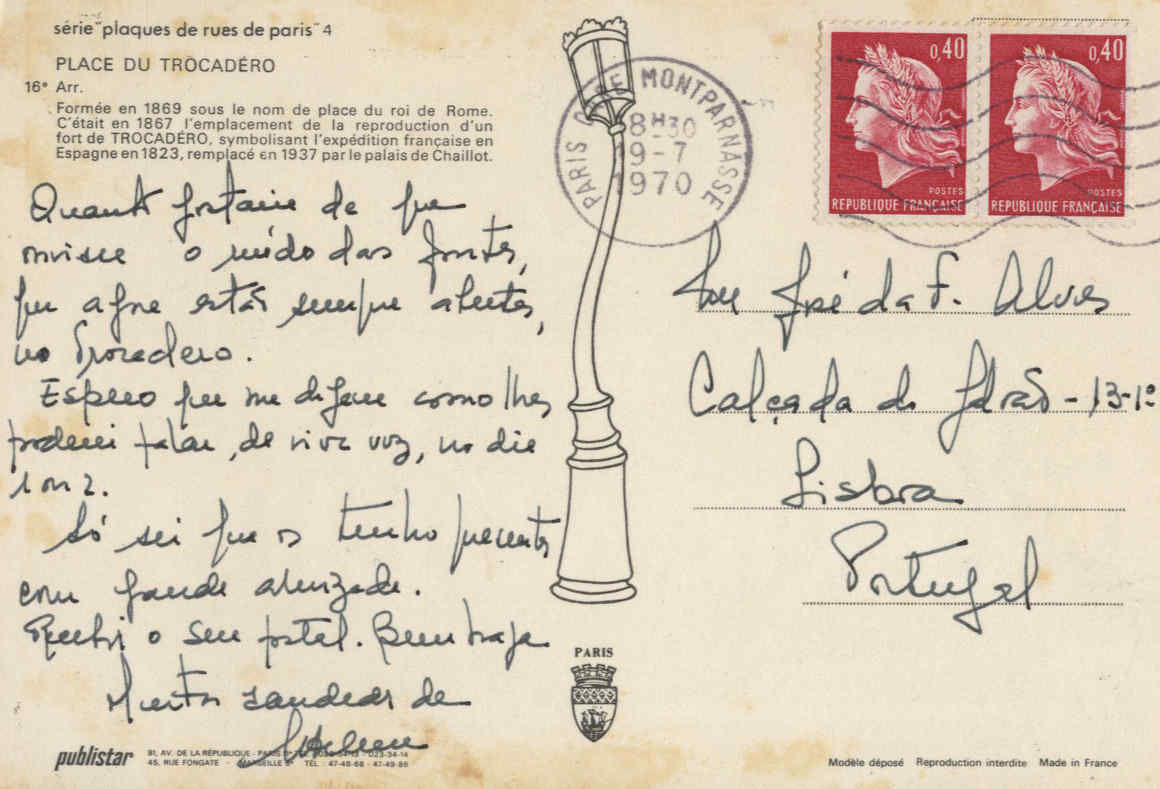 série "plaques de rues de paris" 4
PLACE DU TROCADÉRO
16e Arr.
Formée en 1869 sous le nom de place du roi de Rome.
C'était en 1867 l'emplacement de la reproduction d'un
fort de TROCADÉRO, symbolisant l'expédition française en
Espagne en 1823, remplacé en 1937 par le palais de Chaillot.
Quanto gostaria de que
ouvisse o ruído das fontes,
que agora estão sempre abertas,
no Trocadero.
Espero que me digam como lhes
poderei falar, de viva voz, no dia
1 ou 2.
Só sei que os tenho presentes
com grande amizade.
Recebi o seu postal. Bem haja
Muitas saudades de
PARIS MONTPARNASSE
8H30
19-7
1970
0,40
POSTES
REPUBLIQUE FRANÇAISE
0,40
POSTES
REPUBLIQUE FRANÇAISE
José da F. Alves
Calçada do - 13-1º
Lisboa
Portugal
PARIS
publistar
81, AV. DE LA RÉPUBLIQUE - PARIS
45, RUE FONGATE - MARSEILLE TEL : 47-49-68 - 47-49-86
Modèle déposé Reproduction interdite Made in France